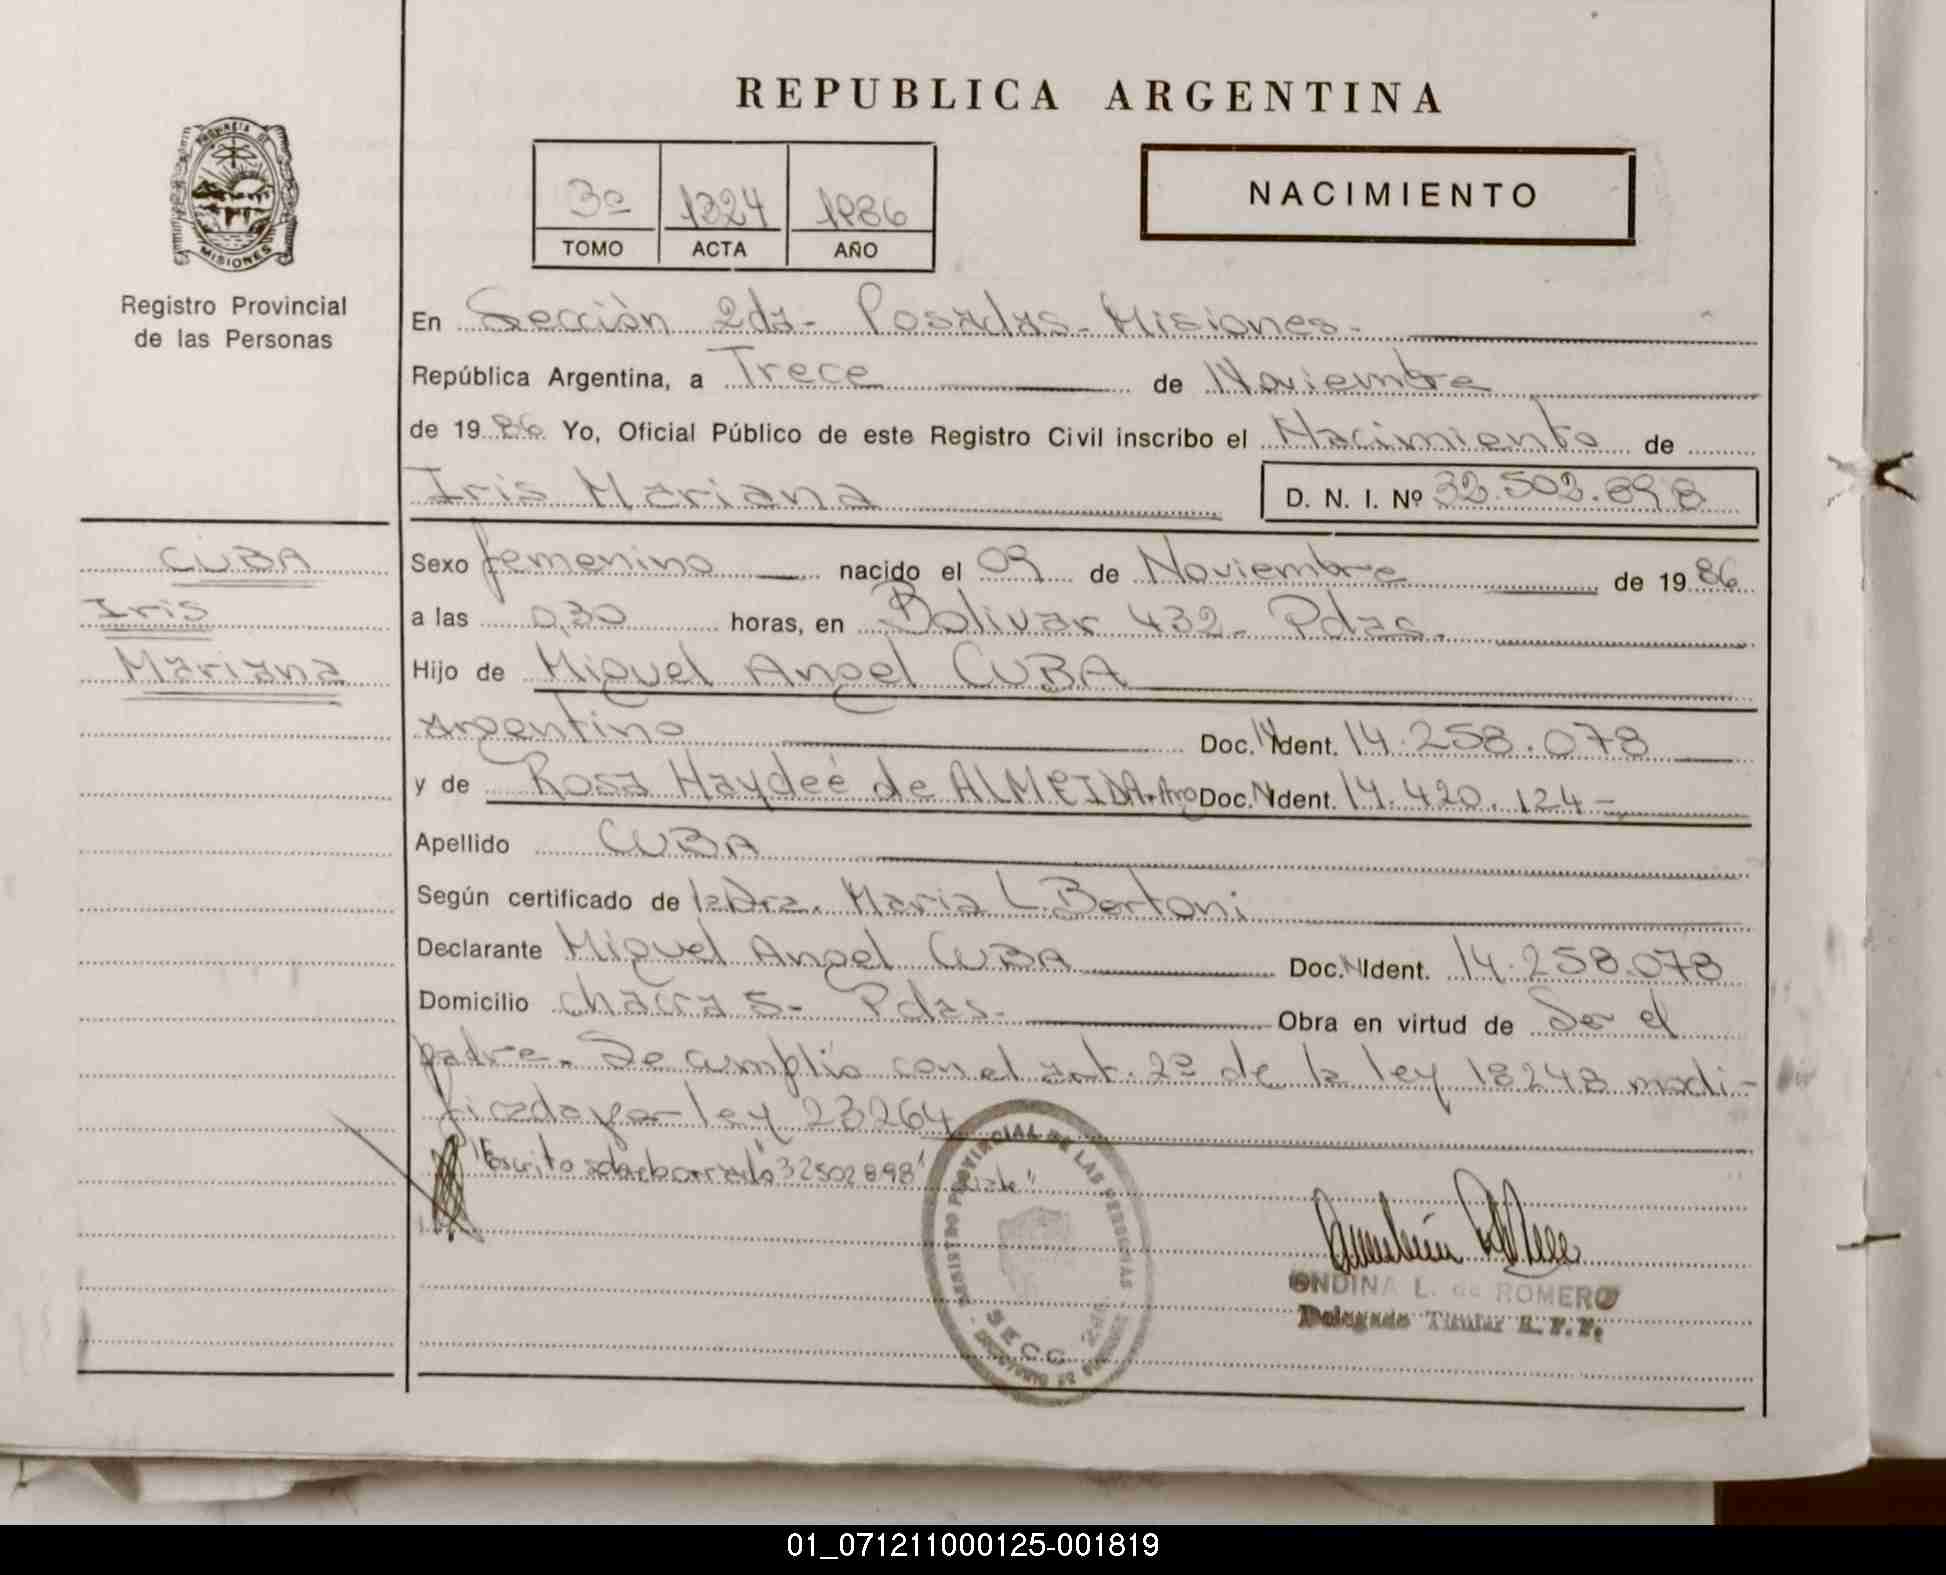 REPUBLICA ARGENTINA
PROVINCIA DE
MISIONES
Registro Provincial
de las Personas
3º 1324 1986
TOMO ACTA AÑO
NACIMIENTO
En Sección 2da- Posadas- Misiones-
República Argentina, a Trece de Noviembre
de 1986 Yo, Oficial Público de este Registro Civil inscribo el Nacimiento de
Iris Mariana D. N. I. Nº 32.502.898
CUBA
Iris
Mariana
Sexo femenino nacido el 09 de Noviembre de 1986
a las 0,30 horas, en Bolivar 432- Pdas.
Hijo de Miguel Angel CUBA
argentino Doc. N Ident. 14.258.078
y de Rosa Haydeé de ALMEIDA. Arg Doc. N Ident. 14.420.124-
Apellido CUBA
Según certificado de la Dra. Maria L. Bertoni
Declarante Miguel Angel CUBA Doc. N Ident. 14.258.078
Domicilio chacra 5- Pdas. Obra en virtud de Ser el
padre. Se cumplió con el art. 2º de la ley 18248 modi-
ficada por ley 23264
"Escrito sobreborrado "32502898" vale"
REGISTRO PROVINCIAL DE LAS PERSONAS
SECC 2da
ONDINA L. de ROMERO
Delegado Titular R. P. P.
01_071211000125-001819